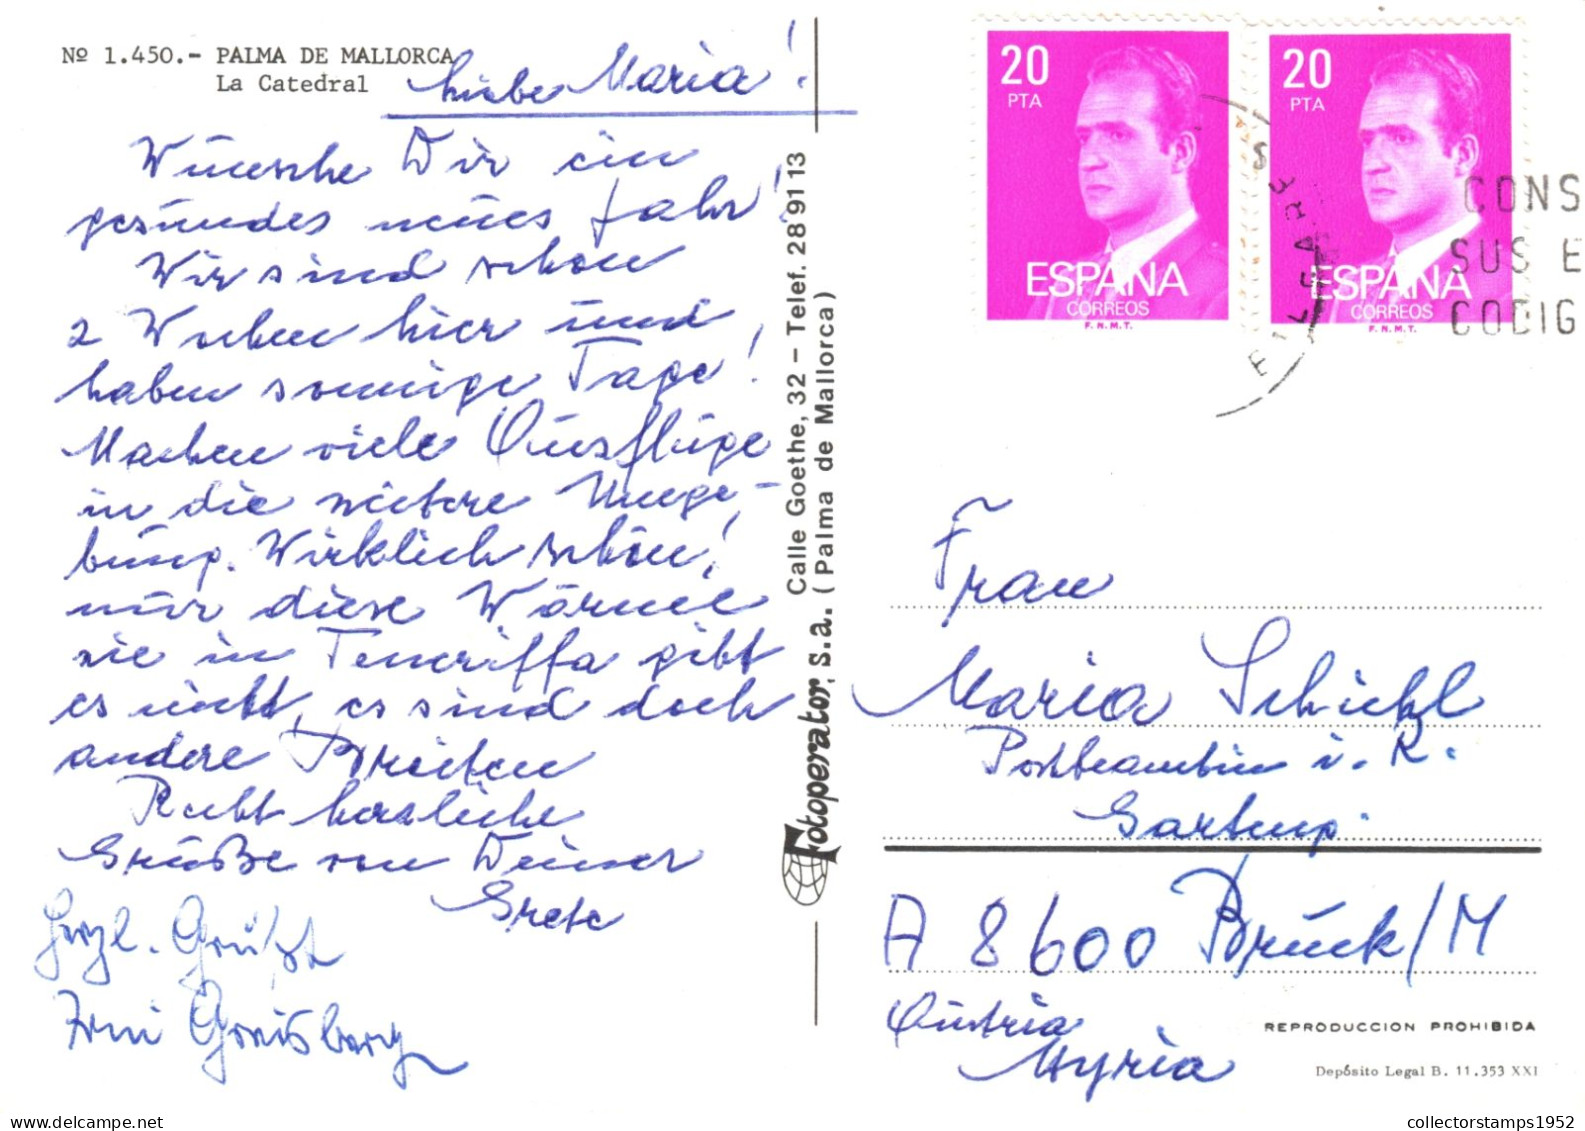 Nº 1.450.- PALMA DE MALLORCA
La Catedral
Liebe Maria!
Wünsche Dir ein
gesundes neues Jahr!
Wir sind schon
2 Wochen hier und
haben sonnige Tage!
Machen viele Ausflüge
in die weitere Umge-
bung. Wirklich schön!
nur diese Wärme
wie in Teneriffa gibt
es nicht, es sind doch
andere Breiten
Recht herzliche
Grüße von Deiner
Grete
Herzl. Grüßt
Greisberg
Fotoperator, s.a. Calle Goethe, 32 - Telef. 28 91 13
(Palma de Mallorca)
20
PTA
ESPAÑA
CORREOS
F.N.M.T.
20
PTA
ESPAÑA
CORREOS
F.N.M.T.
CONS
SUS E
CODIG
Frau
Maria Schickl
Postbeamtin i. R.
A 8600 Brück/M
Austria
Styria
REPRODUCCION PROHIBIDA
Depósito Legal B. 11.353 XXI
collectorstamps1952